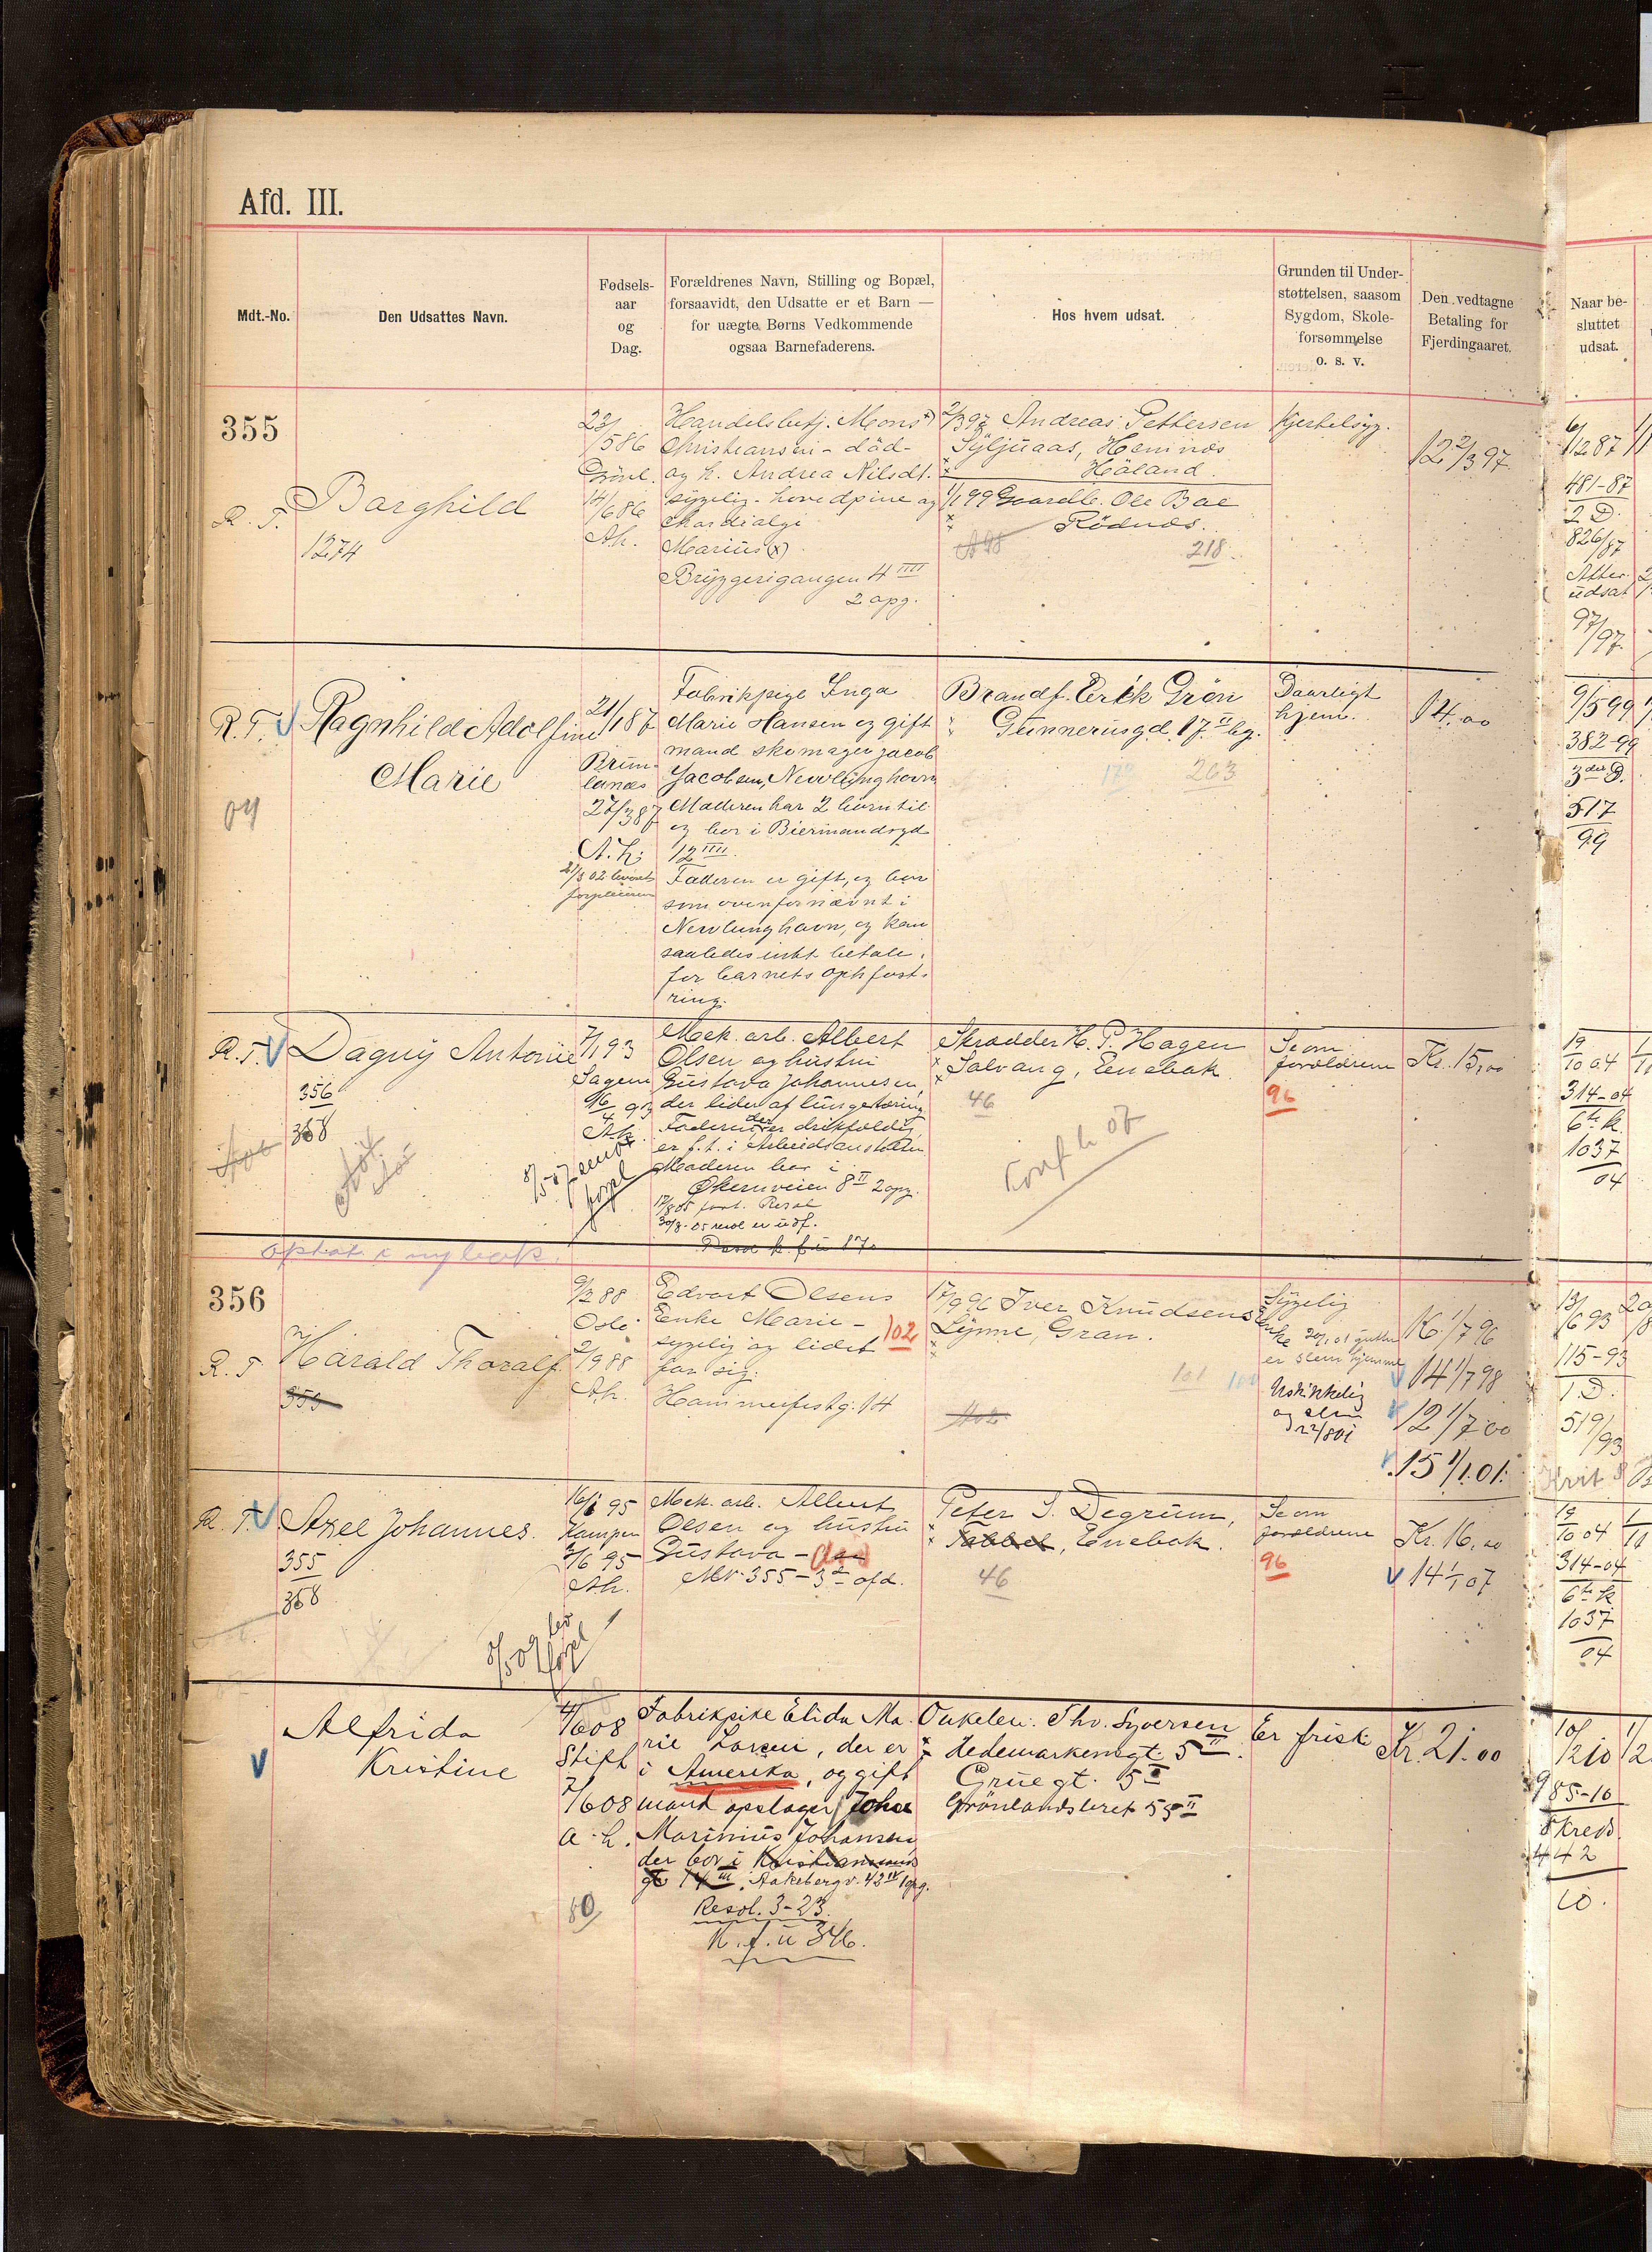 Afd. III.
Mdt.-No.
Den Udsattes Navn.
Fødsels-
aar
og
Dag.
Forældrenes Navn, Stilling og Bopæl,
forsaavidt, den Udsatte er et Barn —
for uægte Børns Vedkommende
ogsaa Barnefaderens.
Hos hvem udsat.
Grunden til Under-
støttelsen, saasom
Sygdom, Skole-
forsømmelse
o. s. v.
Den vedtagne
Betaling for
Fjerdingaaret.
Naar be-
sluttet
udsat.
355
R. F.
Barghild
1274
23/586
Grönl.
14/686
Ah.
Handelsbetj. Mons x)
Christiansen - död -
og h. Andrea Nilsdt.
sygelig - hovedpine og
Kardialgi
Marius (x)
Bryggerigangen 4 IIII
2 opg.
2/3 97 Andreas Pettersen
Syljuaas, Hemnæs
Höland.
1/1 99 Gaardb. Ole Bae
Rödnæs.
A 98
218.
Kjertelsyg.
12 2/3 97.
6/12 87
481-87
2 D.
826/87
Atter
udsat
97/97
R. F. V
Ragnhild Adolfine
Marie
04
21/1 87
Brun-
lanæs
27/3 87
A. h.
Fabrikpige Inga
Marie Hansen og gift
mand skomager Jacob
Jacobsen, Nevlunghavn
Moderen har 2 börn til
og bor i Biermandsgd
12 IIII.
Faderen er gift, og bor
som ovenfornævnt i
Nevlunghavn, og kan
saaledes intet betale
for barnets opfost-
ring.
Brandf. Erik Grön
Gunnerusgd. 17 II bg.
172 263
Daarligt
hjem.
14.00
9/5 99
382-99
3die D.
517
99
R. F. V
Dagny Antonie
356
368
7/1 93
Sagene
16/4 93
Ah.
Mek. arb. Albert
Olsen og hustru
Gustava Johannesen,
der lider af lungetæring
Faderen der er drikfældig
er f. t. i Arbeidsanstalten
Moderen bor i
Økernveien 8 II 2 opg.
Skrædder H. P. Hagen
Solvang, Enebak
46
Konf h 07
Se om
forældrene
96
Kr. 15,00
19/10 04
314-04
6te k.
1037
04
optat i ny bok.
356
R. F
Harald Thoralf
359
9/2 88
Oslo
2/9 88
Ah.
Edvart Olsens
Enke Marie -
sygelig og lidet
for sig.
Hammerfestg. 14
102
17/9 96 Iver Knudsens Enke
Lynne, Gran.
101 100
Sygelig
20/1 01 gutten
er slem hjemme
Uskikkelig
og slem
22/8 01
K 1/7 96
V 14 1/7 98
V 12 1/7 00
V 15 1/1 01.
13/6 93
115-93
1. D.
519/93
R. F. V
Axel Johannes.
355
368
16/1 95
Kampen
3/6 95
Ah.
Mek. arb. Albert
Olsen og hustru
Gustava -
Mt. 355 - 3die afd.
Peter I. Degrum,
Tabbel, Enebak.
46
Se om
forældrene
96
Kr. 16,00
V 14 1/1 07
19/10 04
314-04
6te k
1037
04
V
Alfrida
Kristine
4/6 08
Stift
7/6 08
a. h.
80
Fabrikpike Elida Ma-
rie Larsen, der er
i Amerika, og gift
mand opslager Johan
Marinius Johansen
der bor i Kristiansunds
gt 14 III. Aakebergv. 43 IV 1 opg.
Resol. 3-23.
K. f. u 346.
Onkelen. Thv. Syversen
Hedemarkensgt. 5 II.
Grüegt. 5 II
Grönlandsleret 55 II
Er frisk
Kr. 21.00
10/12 10
985-10
8 kreds
442
10.